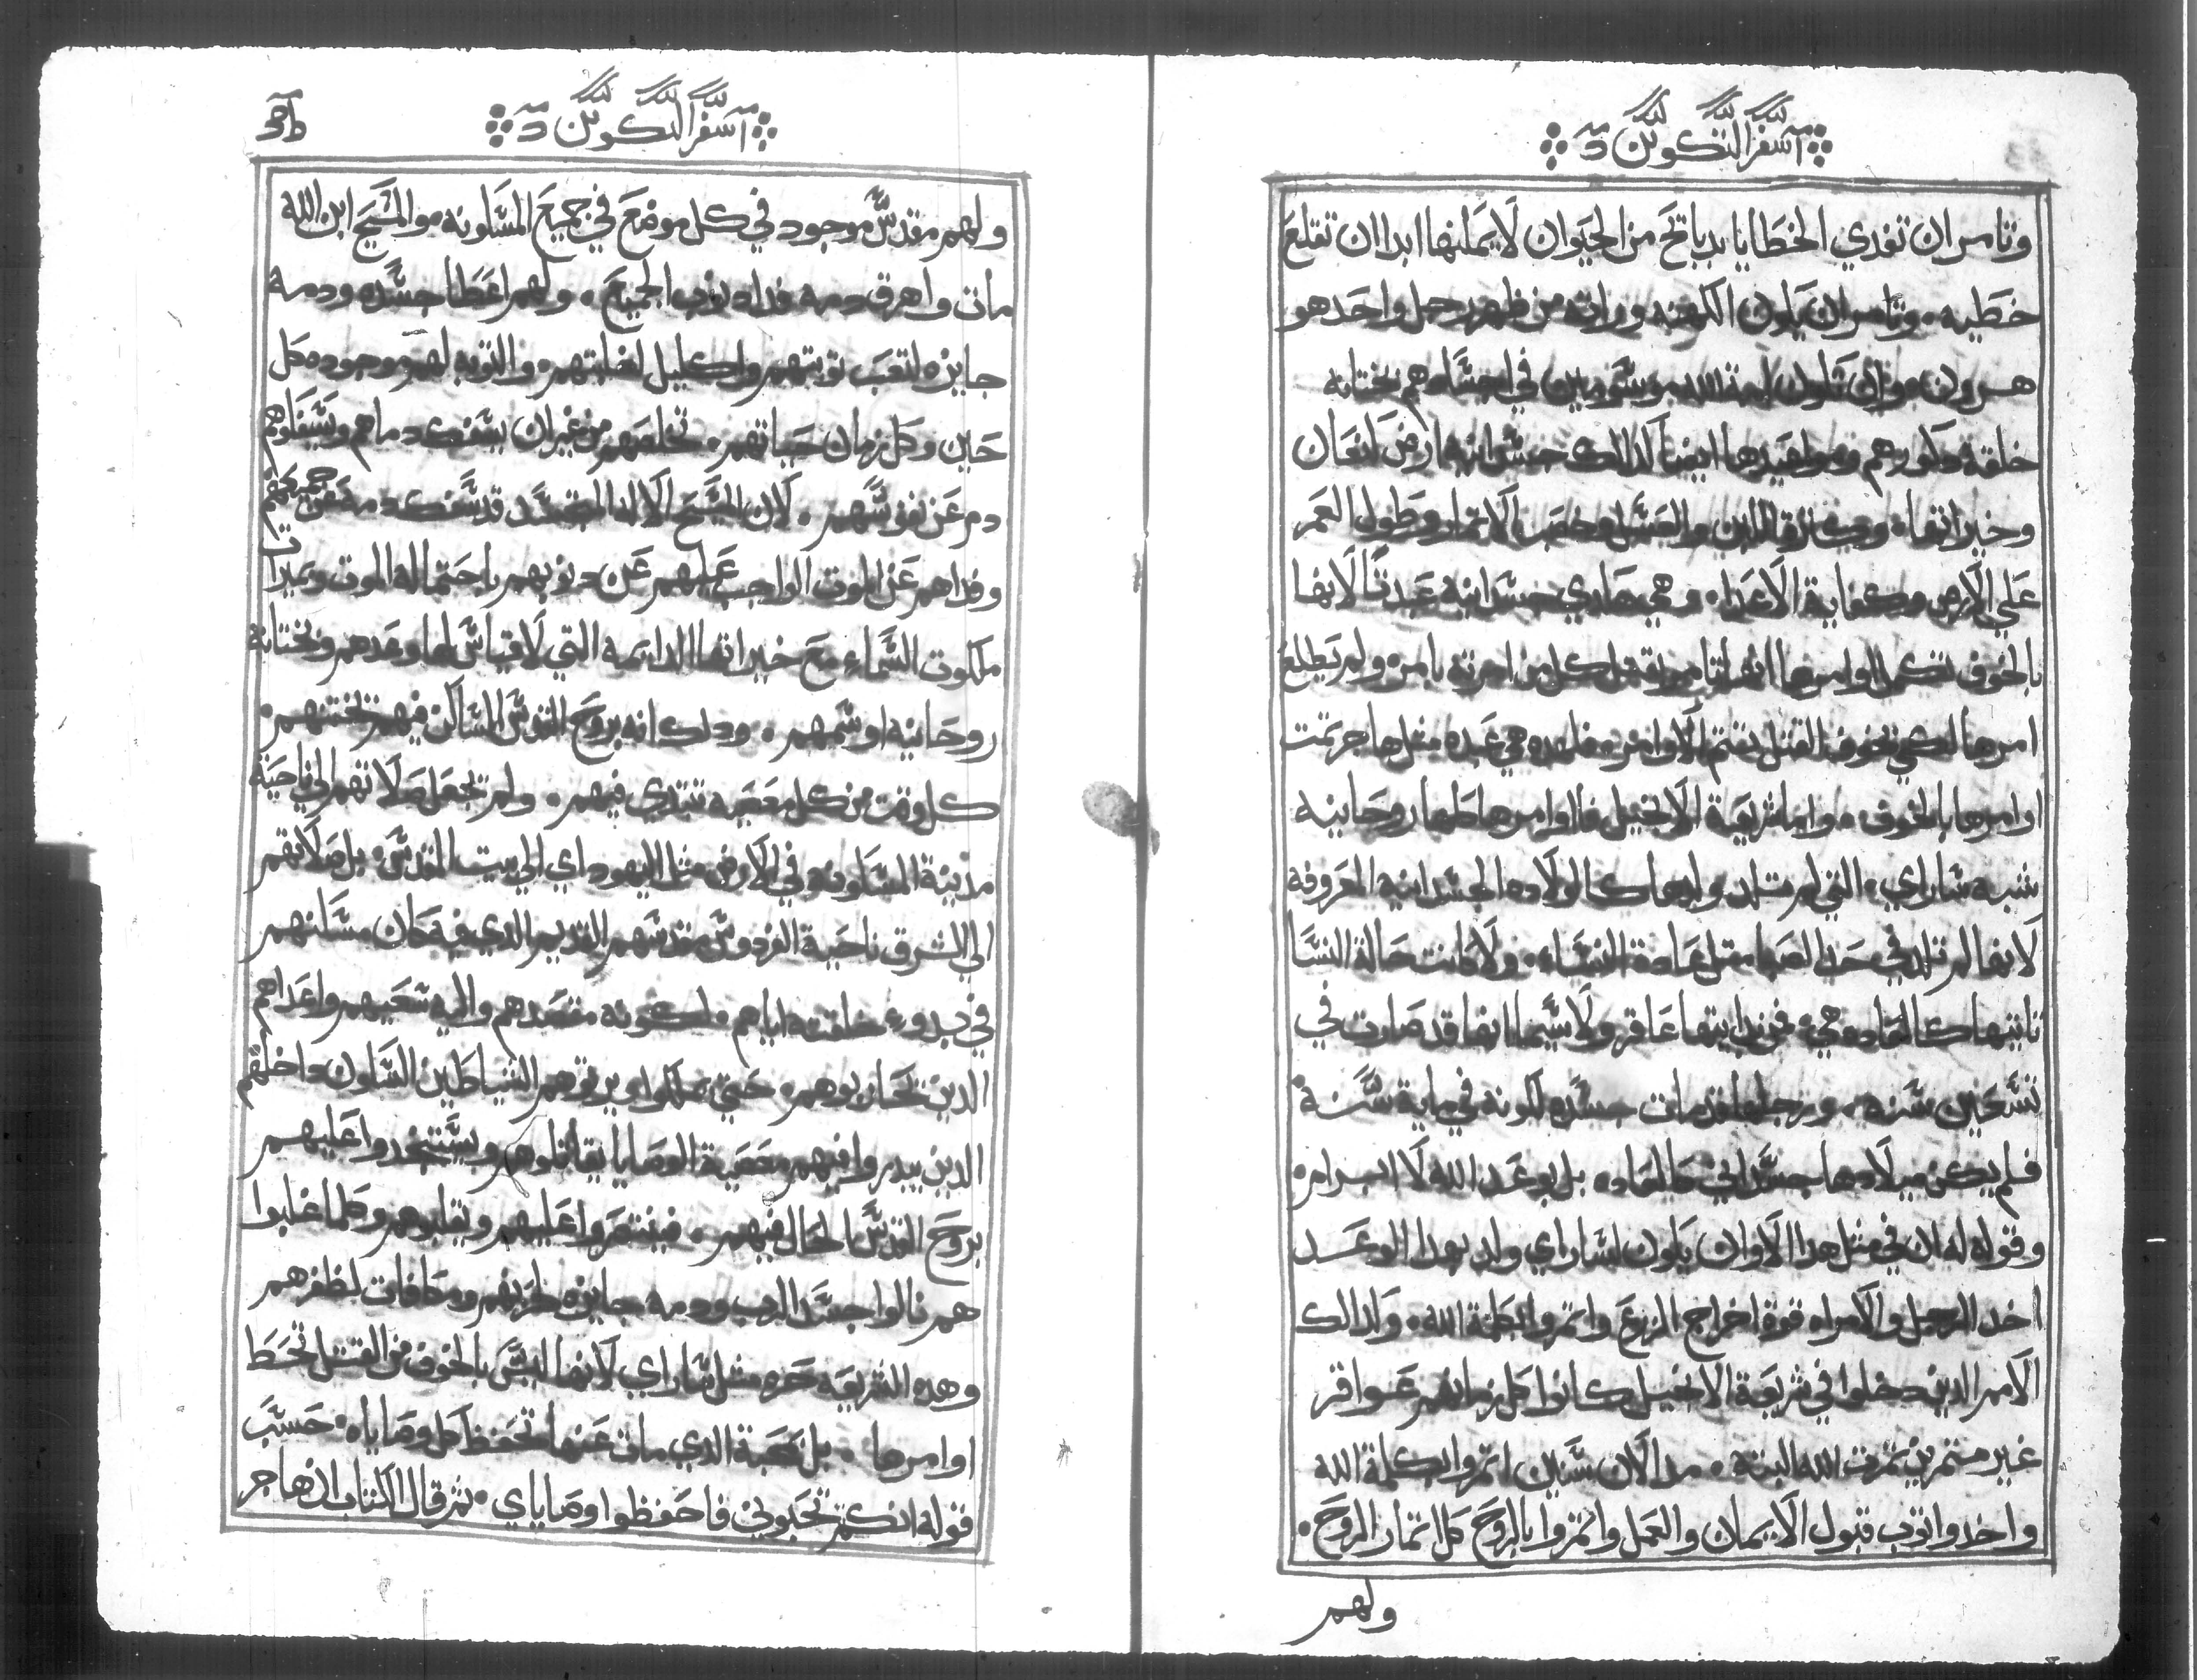 سفر التكوين
وتامر ان تفدي الخطايا بدبايح من الحيوان لا يمكنها ابدا ان تقلع
خطيه. وتامر ان يكون الكهنه وراثه من ظهر رجل واحد هو
هرون وان تكون امة الله موسومين في اجسادهم بختانه
خلقه وعيدها ايضا كدالك جسدانيه ارض كنعان
وخيراتها وكترة اللبن والعسل وخصب الاتمار وطول العمر
علي الارض وكفاية الاعداء وهي هادي جسدانيه عبدة لانها
بالخوف تكمل اوامرها انها تامر بقتل كل من امرته بامر ولم يطيع
امرها لكي بخوف القتل تتم الاوامر فلهده هي عبده متل هاجر تمت
اوامرها بالخوف. واما شريعة الانجيل فاوامرها كلها روحانيه
شبه ساراي، التي لم تلد وليها كالولاده الجسدانيه المعروفه
لانها لم تلد في حد الصبا متل عادة النساء. ولا كانت حالة النسا
تاتيها كالعاده هي فمن بدايتها عاقر ولا سيما انها قد صارت في
تسعين سنه، ورجلها قد مات جسده لكونه في ماية سنة
فلم يكن ميلادها جسداني كالعاده بل بوعد الله لا ابرام
وقوله له ان في متل هدا الاوان يكون لساراي ولد بهدا الوعد
اخد الرجل والامراه قوة اخراج الزرع واتمروا بكلمة الله، وكدالك
الامم الدين دخلوا في شريعة الانجيل كانوا كل زمانهم عواقر
غير متمرين تمرت الله البته. مد الان سنين اتمروا بكلمة الله
واخدوا توب قبول الايمان والعمل واتمروا بالروح كل اتمار الروح.
ولهم
سفر التكوين
ولهم مقدس موجود في كل موضع في جميع المسكونه هو المسيح ابن الله
مات واهرق دمه فداه بدب الجميع. ولهم اعطا جسده ودمه
جايزه لتعب توبتهم واكليل لغلبتهم والتوبه لهم موجوده كل
حين وكل زمان حياتهم. تخلصهم من غير ان يسفك دماهم ويسفكوا هم
دم عن نفوسهم. لان المسيح الاله المتجسد قد سفك دمه عن جميعهم
وفداهم عن الموت الواجب عليهم عن دنوبهم باحتماله الموت وميرات
ملكوت السماء مع خيراتها الدايمه التي لا قياس لها وعدهم وبختانه
روحانيه اوسمهم. ودلك انه بروح القدس الساكن فيهم تختنهم
كل وقت من كل معصيه تبتدي فيهم. ولم تجعل صلاتهم الي ناحية
مدينة المسكونه في الارض متل اليهود اي الي بيت المقدس، بل صلاتهم
الي الشرق ناحية الفردوس مقدسهم القديم الدي فيه كان مسكنهم
في بدوء خلقته اياهم. لكونه مقصدهم واليه سعيهم واعداهم
الدين يحاربوهم، حتي يملكوا ويرتوهم الشياطين الساكن داخلهم
الدين يبدروا فيهم معصية الوصايا يقاتلوهم ويستنجدوا عليهم
بروح القدس الحال فيهم. فينتصروا عليهم ويغلبوهم وكلما غلبوا
هم نالوا جسد الرب ودمه جايزه لحربهم ومكافات لظفرهم
وهده الشريعه حره متل ساراي لانها ليس بالخوف من القتل تحفظ
اوامرها. بل بمحبة الدي مات عنها تحفظ كل وصاياه. حسب
قوله ان كنتم تحبوني فاحفظوا وصاياي. تم قال الكتاب ان هاجر